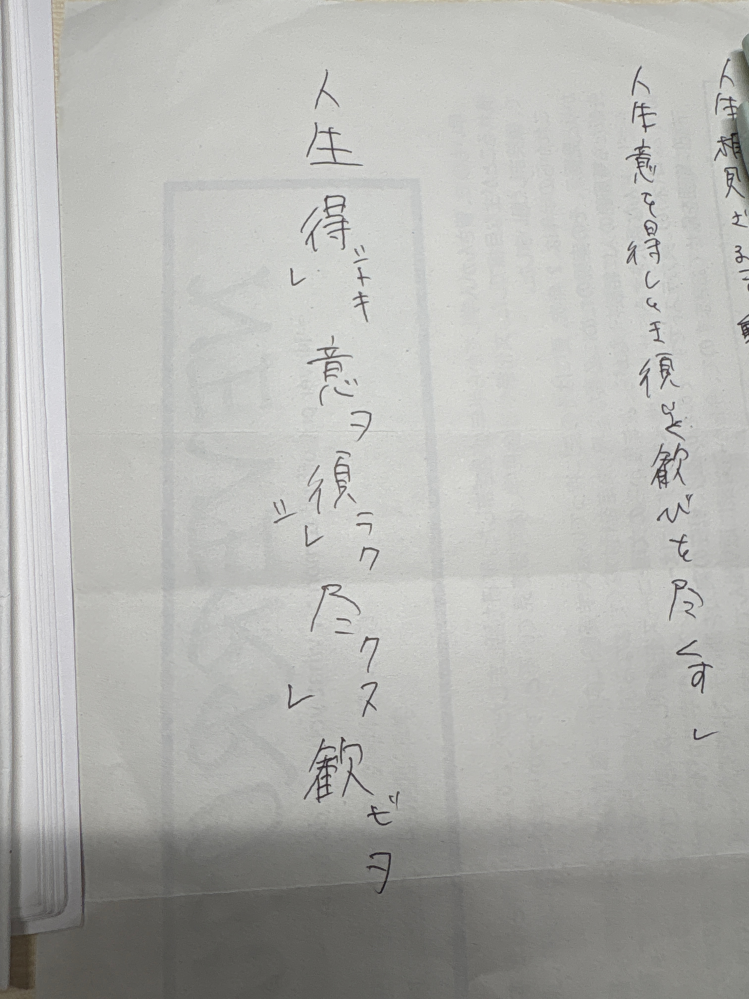 人生相見ざる
人生意を得しとき須 歓びを尽くすし
人生得シトキレ意ヲ須ラクレシ尽クスレ歓ビヲ